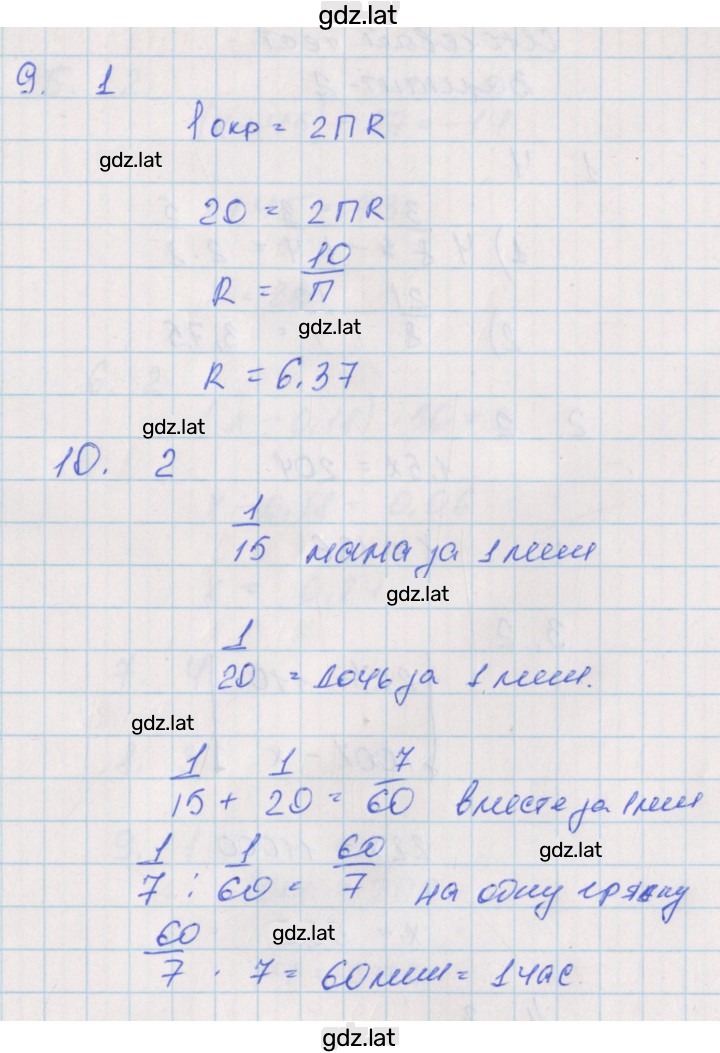 gdz.lat
9. 1
lокр = 2ПR
gdz.lat
20 = 2ПR
R = 10/П
gdz.lat
R = 6.37
gdz.lat
10. 2
1/15 мама за 1 мин
gdz.lat
1/20 = дочь за 1 мин.
gdz.lat
1/15 + 1/20 = 7/60 вместе за 1 мин
gdz.lat
1/7 : 1/60 = 60/7 на одну грядку
gdz.lat
60/7 · 7 = 60 мин = 1 час
gdz.lat